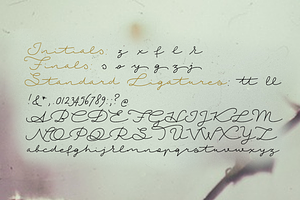 Initials z x f l r
Finals s o y g z j
Standard Ligatures: tt ll
!&*,.0123456789:;?@
ABCDEFGHIJKLM
NOPQRSTUVWXYZ
abcdefghijklmnopqrstuvwxyz